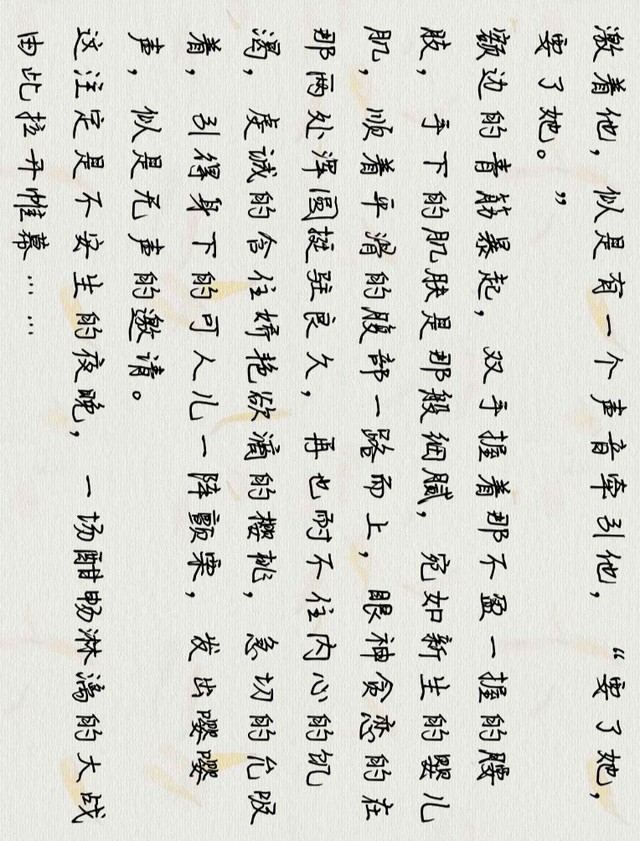 激着他，似是有一个声音牵引他，“要了她，
要了她。”
额边的青筋暴起，双手握着那不盈一握的腰
肢，手下的肌肤是那般细腻，宛如新生的婴儿
肌，顺着平滑的腹部一路而上，眼神贪恋的在
那两处浑圆挺驻良久，再也耐不住内心的饥
渴，虔诚的含住娇艳欲滴的樱桃，急切的允吸
着，引得身下的可人儿一阵颤栗，发出嘤嘤
声，似是无声的邀请。
这注定是不安生的夜晚，一场酣畅淋漓的大战
由此拉开帷幕……